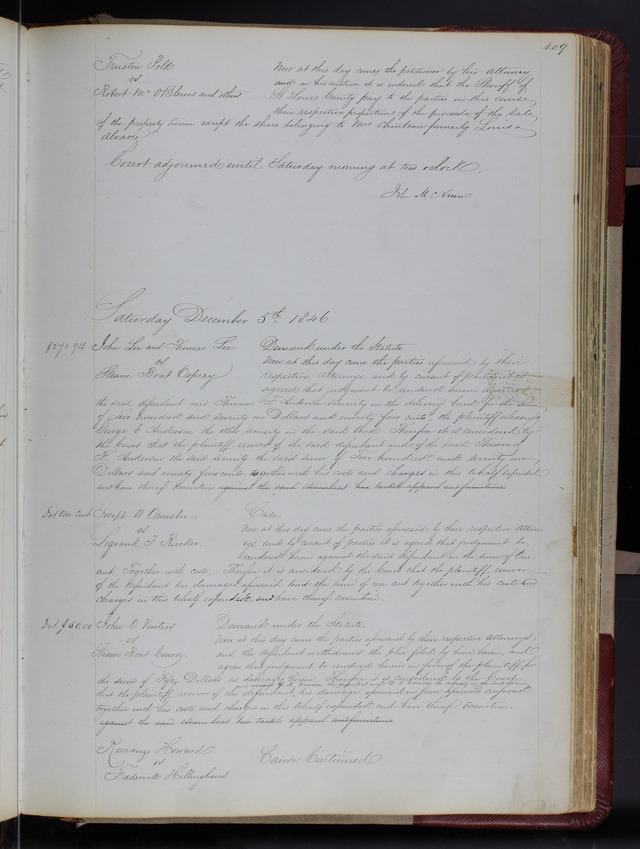 409
Trusten Polk
vs
Robert M. O'Blenis and others
Now at this day comes the petitioner by his attorney
and on his motion it is ordered that the Sheriff of
St Louis County pay to the parties in this cause
their respective proportions of the proceeds of the sale
of the property herein except the share belonging to Mrs Chouteau formerly Louisa
Alvarez
Court adjourned until Saturday morning at ten o'clock.
Saturday December 5th 1846
$271.94 John Lee and Thomas Lee
vs
Steam Boat Osprey
Demand under the Statute
Now at this day come the parties aforesaid by their
respective attorneys, and by consent of parties it is
agreed that judgment be rendered against
the said defendant and Thomas F Anderson security in the delivery bond for the sum
of two hundred and seventy one Dollars and ninety four cents, the plaintiff releasing
George C Anderson the other security in the said Bond. Therefore it is considered by
the Court that the plaintiffs recover of the said defendant and of the said Thomas
F Anderson the said security the said sum of Two hundred and seventy one
Dollars and ninety four cents together with his costs and charges in this behalf expended
and have thereof execution against the said steamboat her tackle apparel and furniture
Jdt One Cent Joseph W Ormsbee
vs
Legrand F Rucker.
Case.
Now at this day come the parties aforesaid by their respective Attorn
eys, and by consent of parties it is agreed that judgment be
rendered herein against the said defendant in the sum of One
cent. Together with costs. Therefore it is considered by the Court that the plaintiff recover
of the defendant his damages aforesaid the sum of one cent together with his costs and
charges in this behalf expended, and have thereof execution.
Jdt $50.00 John O
vs
Steam Boat Convoy.
Demand under the Statute.
Now at this day come the parties aforesaid by their respective Attorneys,
and the defendant withdraws the plea filed by him herein, and
agree that judgment be rendered herein in favor of the plaintiff for
the sum of Fifty Dollars as damages herein. Therefore it is considered by the Court
that the plaintiff recover of the defendant, his damages aforesaid in form aforesaid confessed
together with his costs and charges in this behalf expended and have thereof Execution
against the said steamboat her tackle apparel and furniture
Howard
vs
Frederick Hellinghaus
Cause Continued